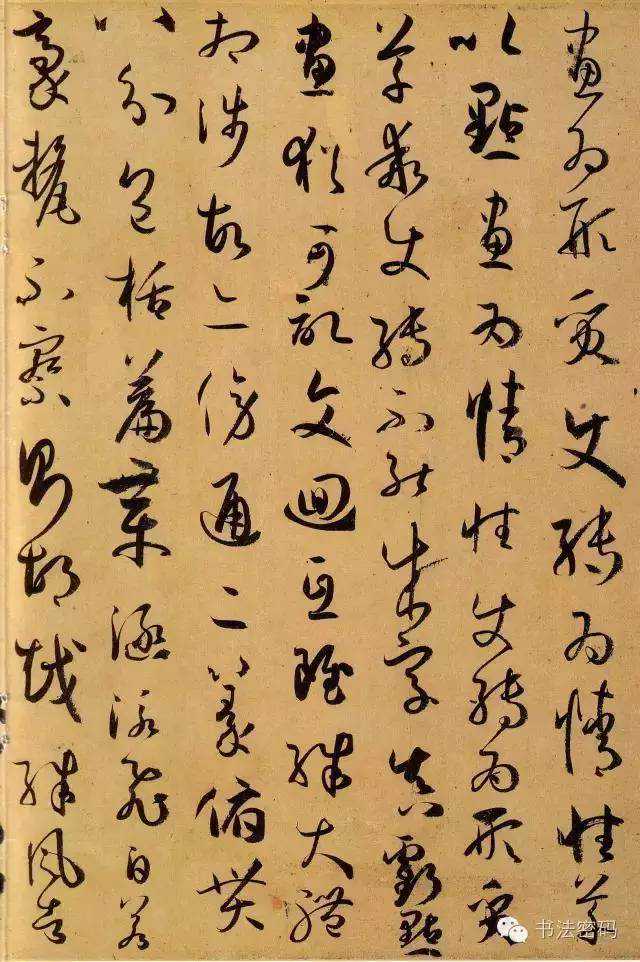 畫為形質使轉為情性草
以點畫為情性使轉為形質
草乖使轉不能成字真虧點
畫猶可記文迴互雖殊大體
相涉故亦傍通二篆俯貫
八分包括篇章涵泳飛白若
豪釐不察則胡越殊風者
书法密码